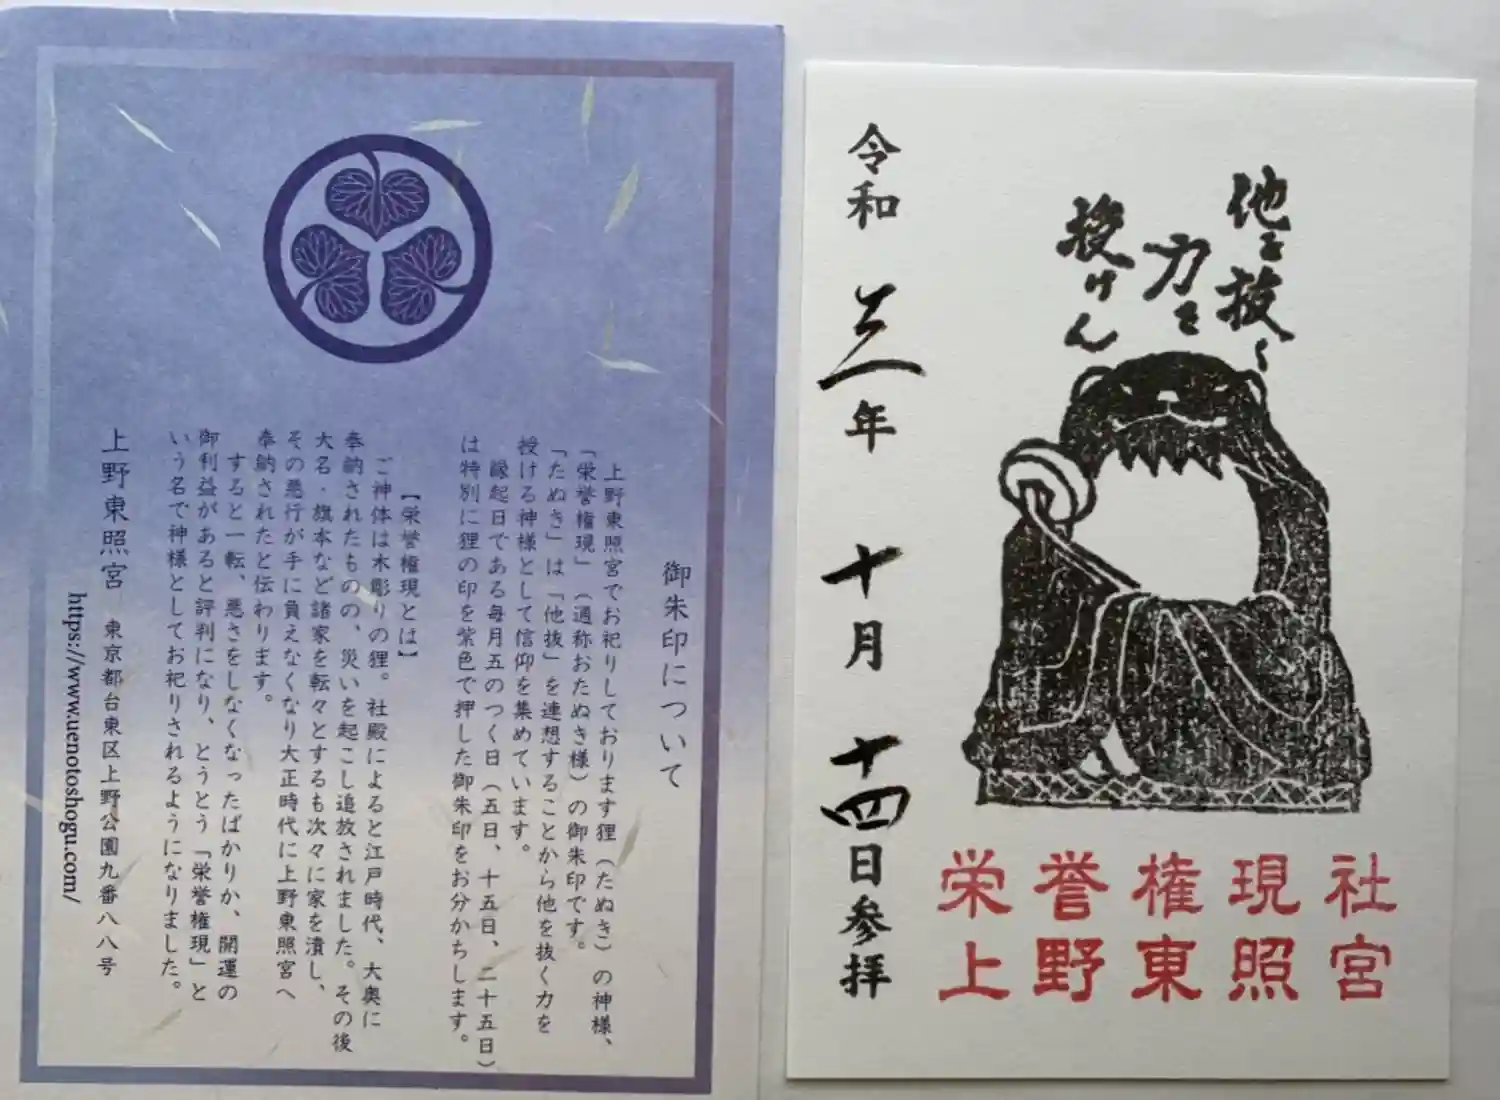 御朱印について
上野東照宮でお祀りしております狸（たぬき）の神様、
「栄誉権現」（通称おたぬき様）の御朱印です。
「たぬき」は「他抜」を連想することから他を抜く力を
授ける神様として信仰を集めています。
縁起日である毎月五のつく日（五日、十五日、二十五日）
は特別に狸の印を紫色で押した御朱印をお分かちします。
【栄誉権現とは】
ご神体は木彫りの狸。社殿によると江戸時代、大奥に
奉納されたものの、災いを起こし追放されました。その後
大名・旗本など諸家を転々とするも次々に家を潰し、
その悪行が手に負えなくなり大正時代に上野東照宮へ
奉納されたと伝わります。
すると一転、悪さをしなくなったばかりか、開運の
御利益があると評判になり、とうとう「栄誉権現」と
いう名で神様としてお祀りされるようになりました。
上野東照宮 東京都台東区上野公園九番八八号
https://www.uenotoshogu.com/
他を抜く
力を
授けん
令和三年十月十四日参拝
栄誉権現社
上野東照宮